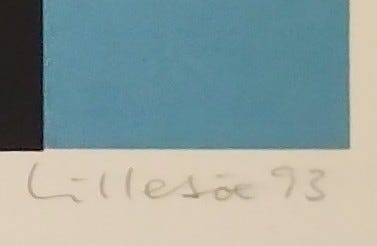 Lillesøe 93